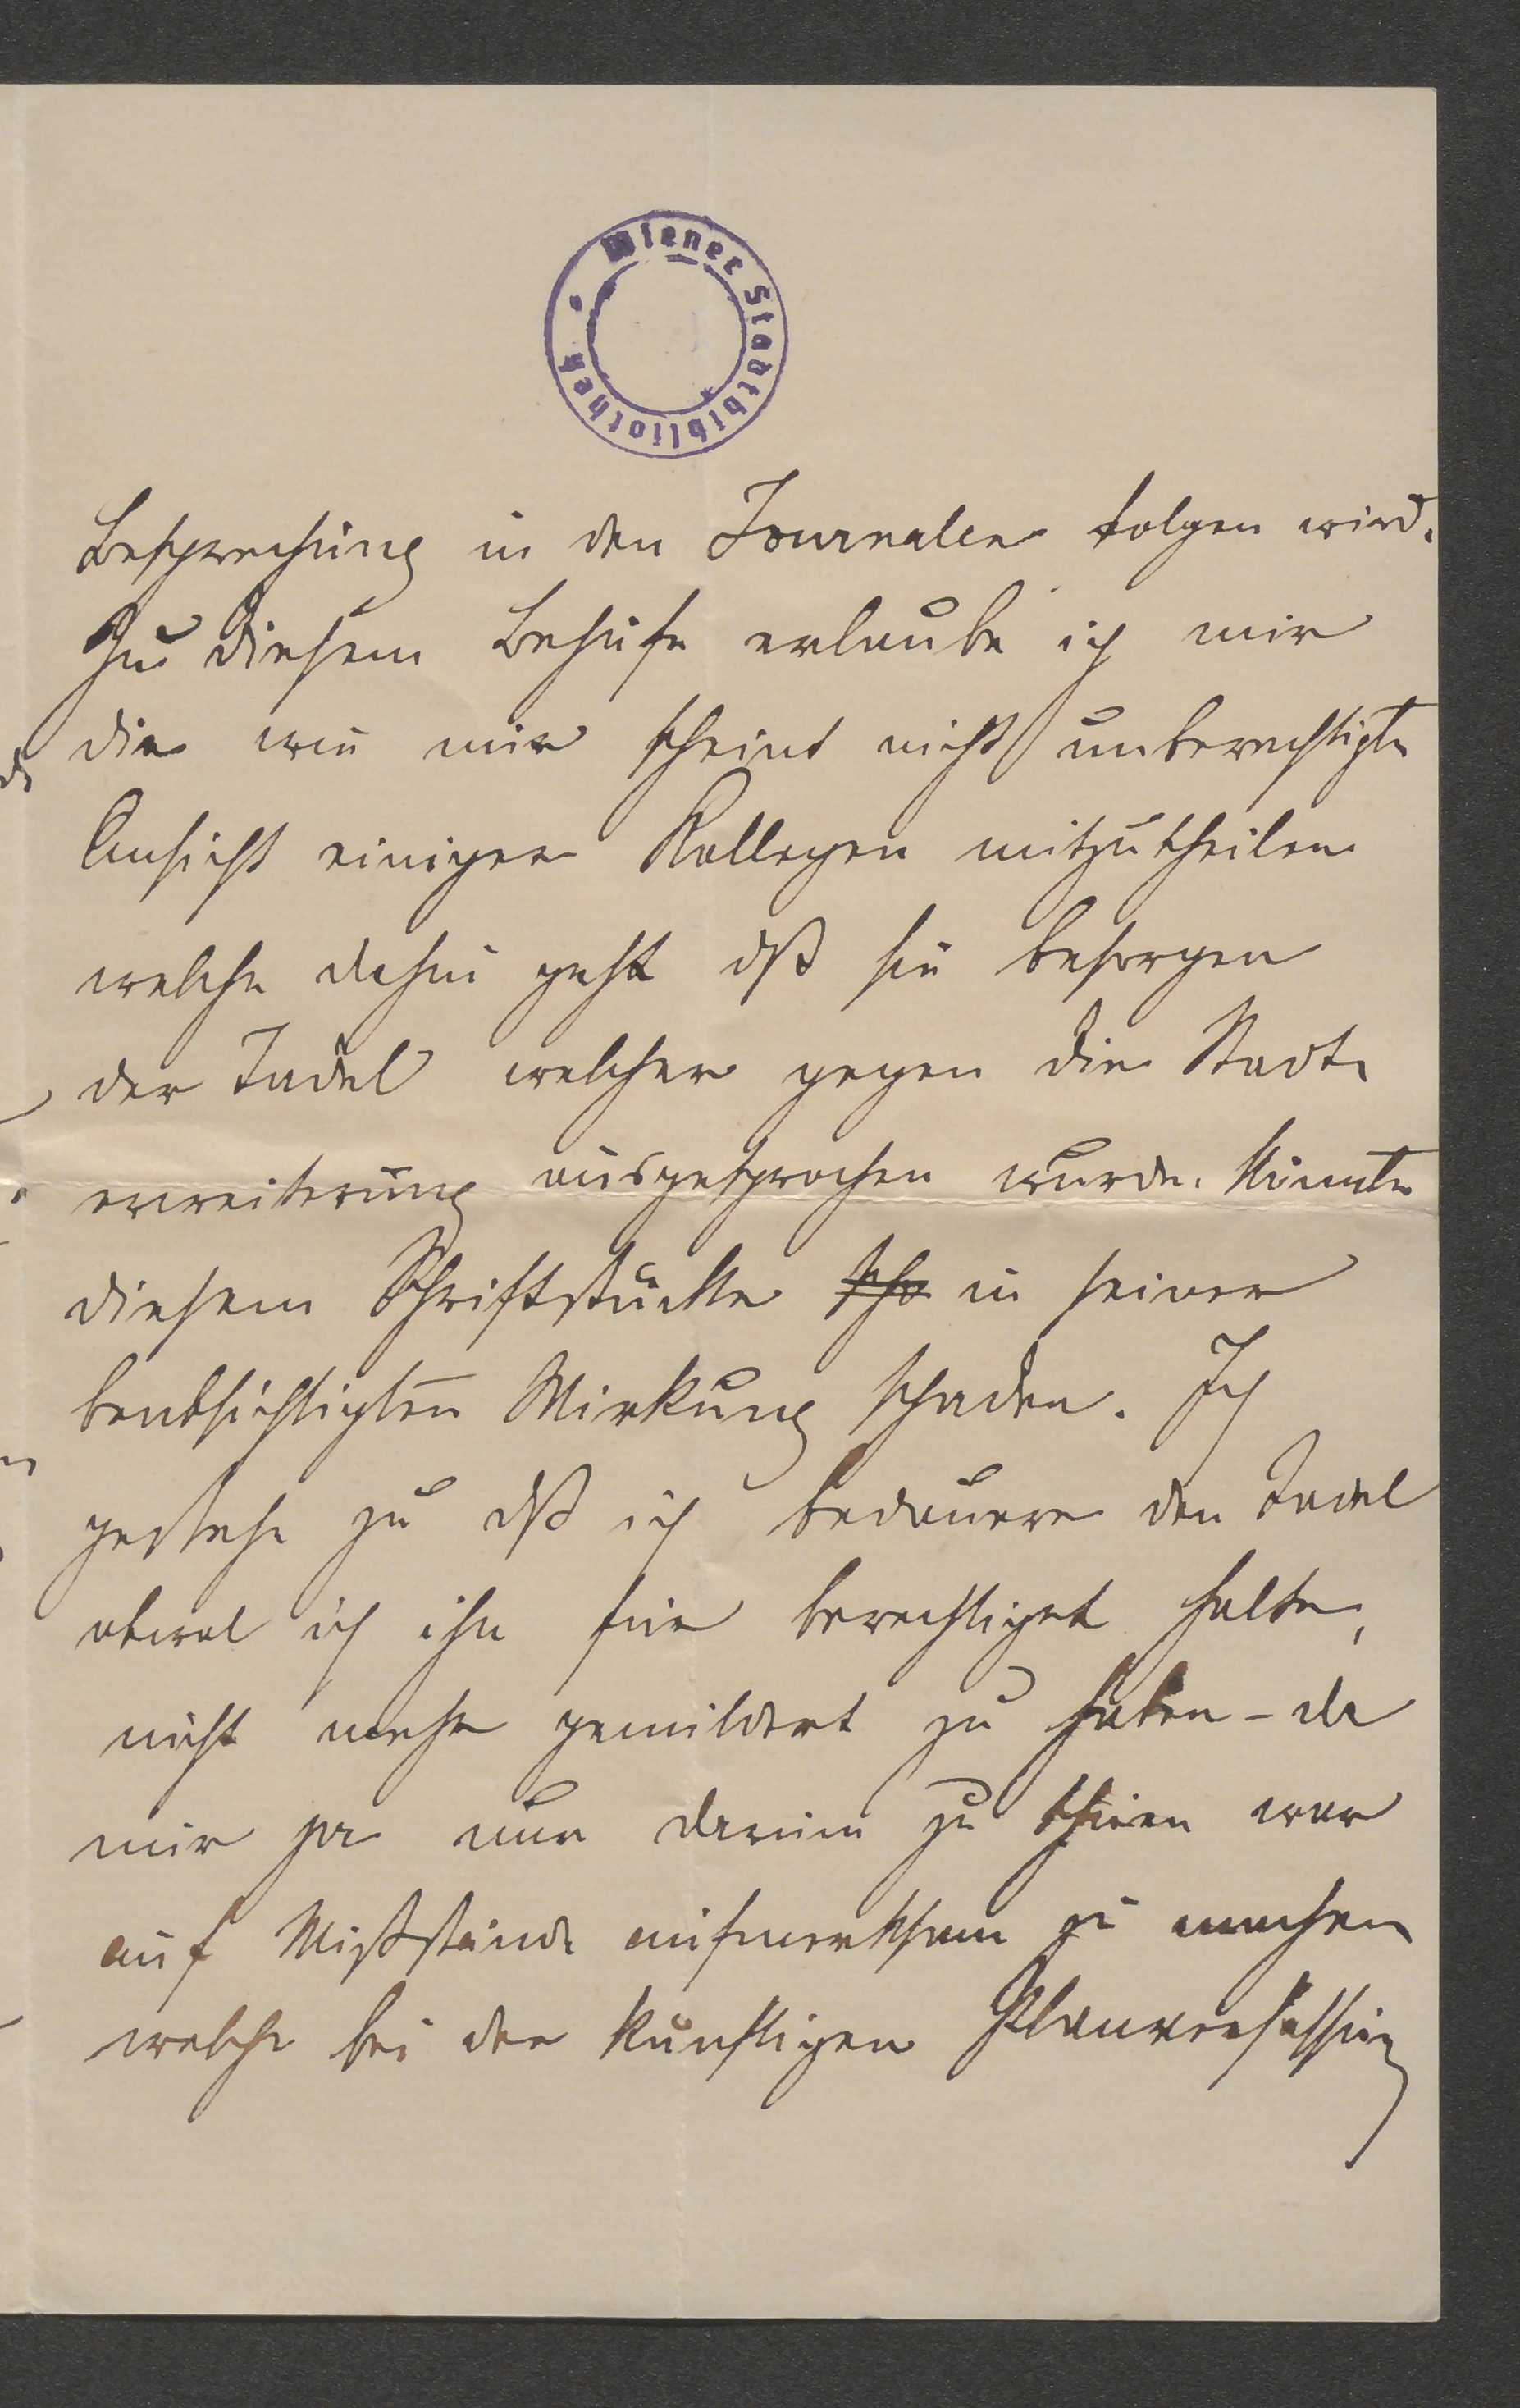 Wiener Stadtbibliothek
Besprechung in den Journalen folgen wird.
Zu diesem Behufe erlaube ich mir
die wie mir scheint nicht unberechtigte
Ansicht einiger Kollegen mitzutheilen
welche dahin geht dß sie besorgen
der Tadel welcher gegen die Stadt
erweiterung ausgesprochen wurde. könnte
diesem Schriftstücke scha in seiner
beabsichtigten Wirkung schaden. Ich
gestehe zu dß ich bedauere den Tadel
obwol ich ihn für berechtiget halte,
nicht mehr gemildert zu haben – da
mir ja nur darum zu thuen war
auf Mißstände aufmerksam zu machen
welche bei der künftigen Planverfassung